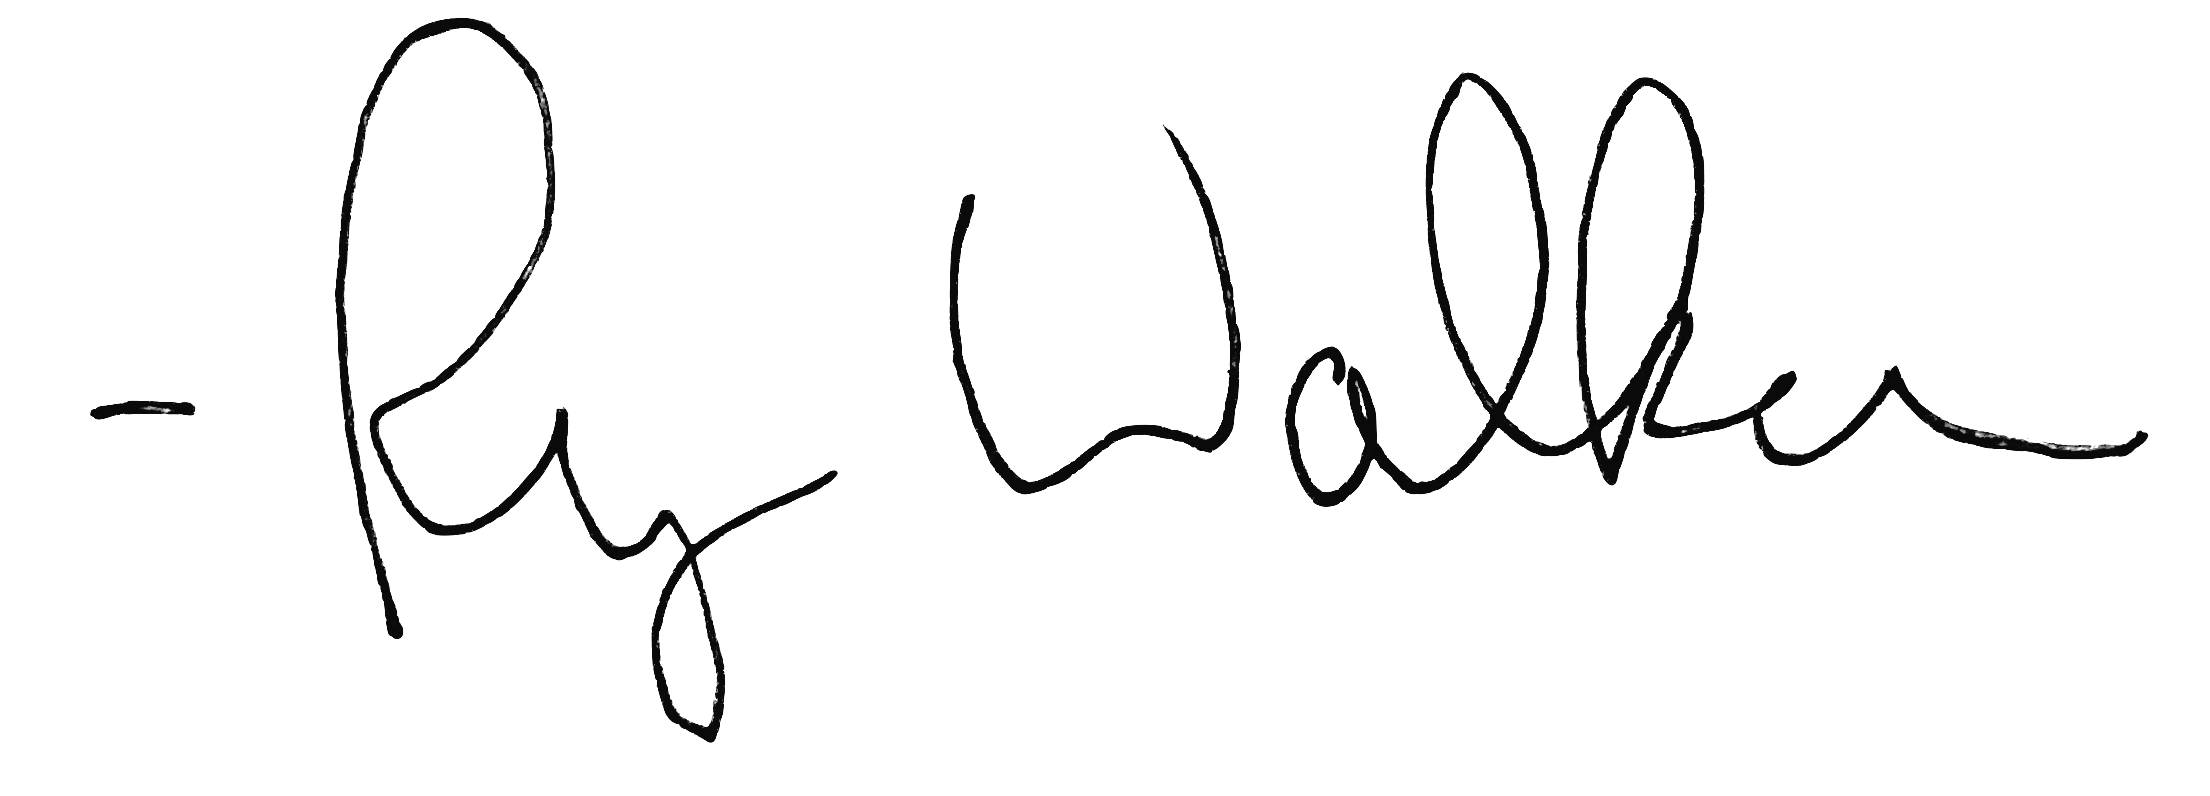 - Ry Walker